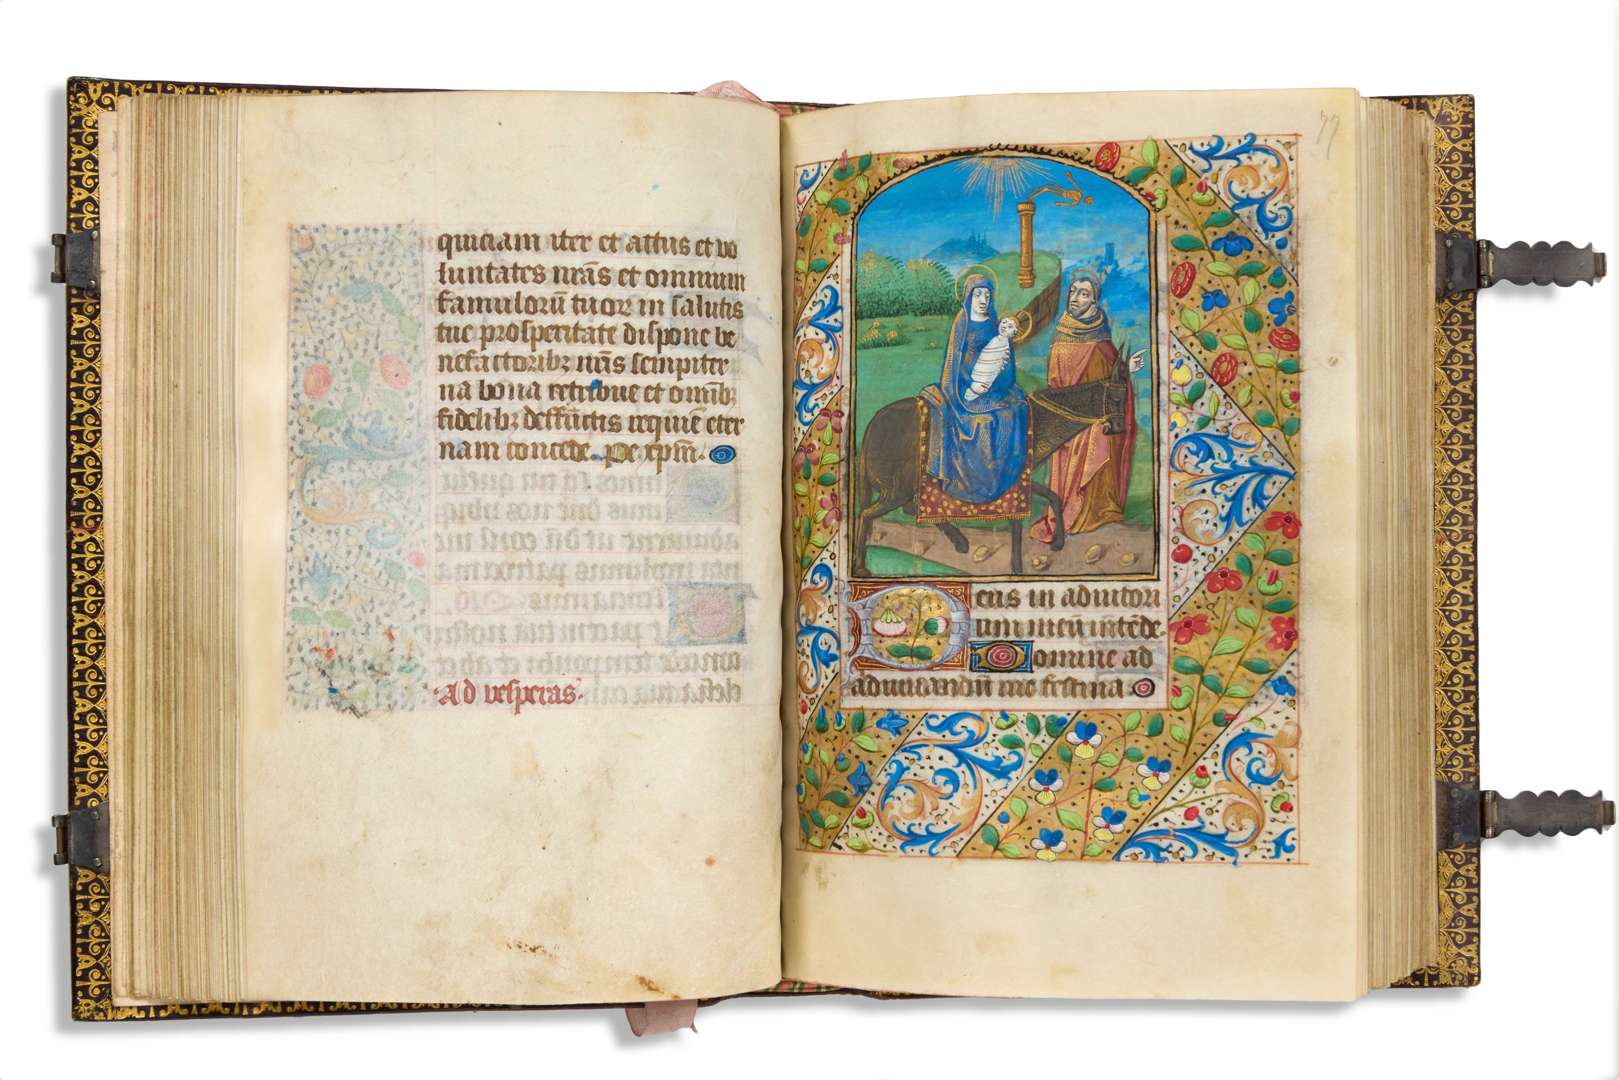 quiciam iter et actus et vo
luntates nr̄as et omnium
famulorū tuoꝝ in salutis
tue prosperitate dispone be
nefactoribꝫ nr̄is sempiter
na bona retribue et omībꝫ
fidelibꝫ deffūctis requiē eter
nam concede. Pe xpm̄.
Ad vesperas.
77
Deus in adiutori
um meū intēde
Domine ad
adiuuandū me festina